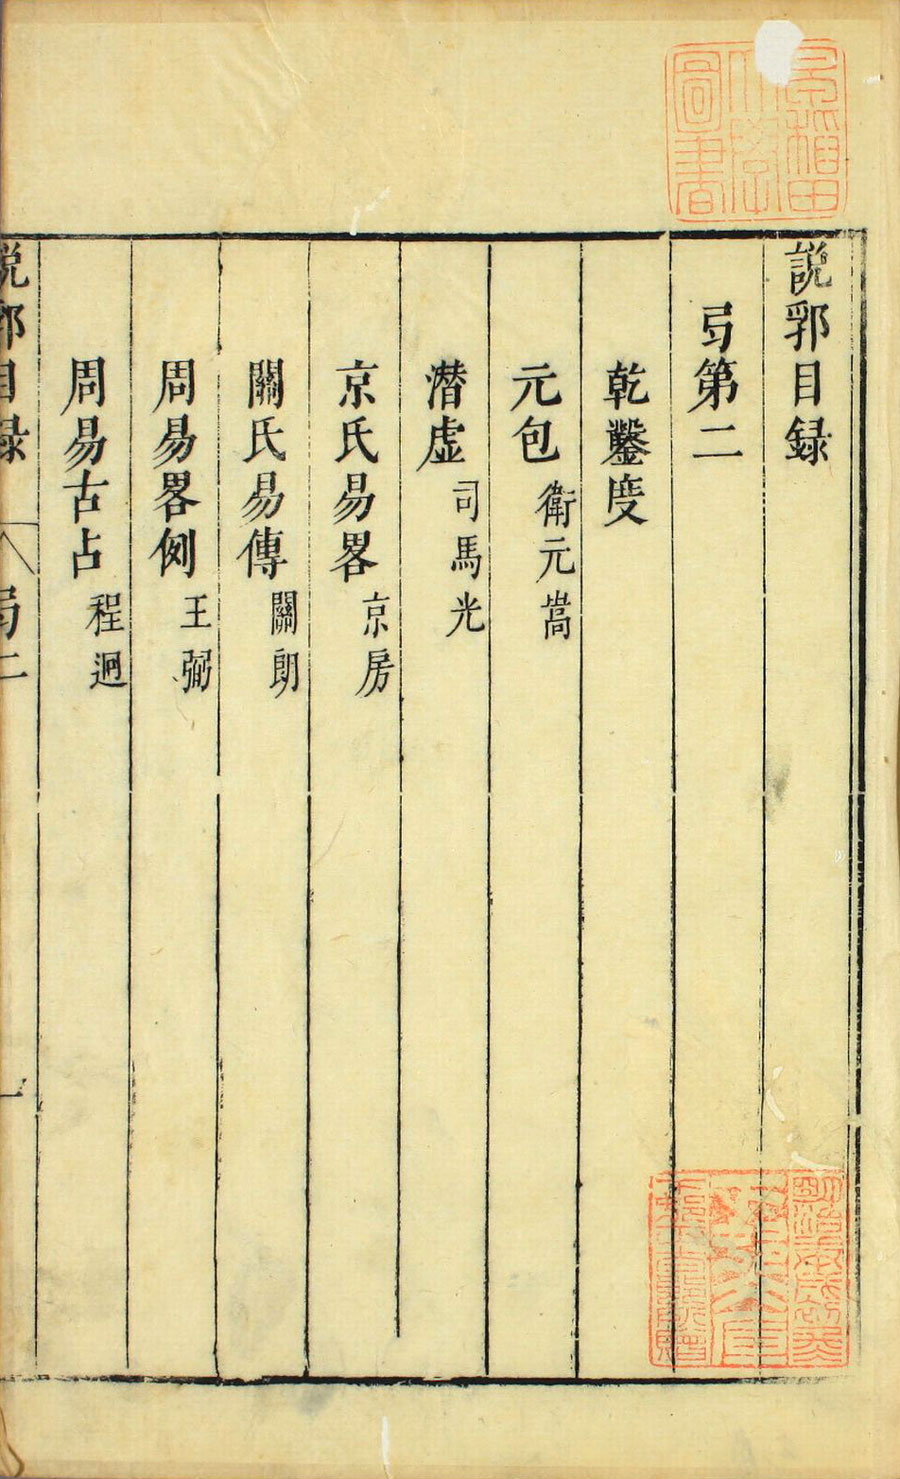 說郛目録
弓第二
乾鑿度
元包 衛元嵩
潛虛 司馬光
京氏易畧 京房
關氏易傳 關朗
周易畧例 王弼
周易古占 程迥
說郛目録 弓二 一
早稲田大學圖書